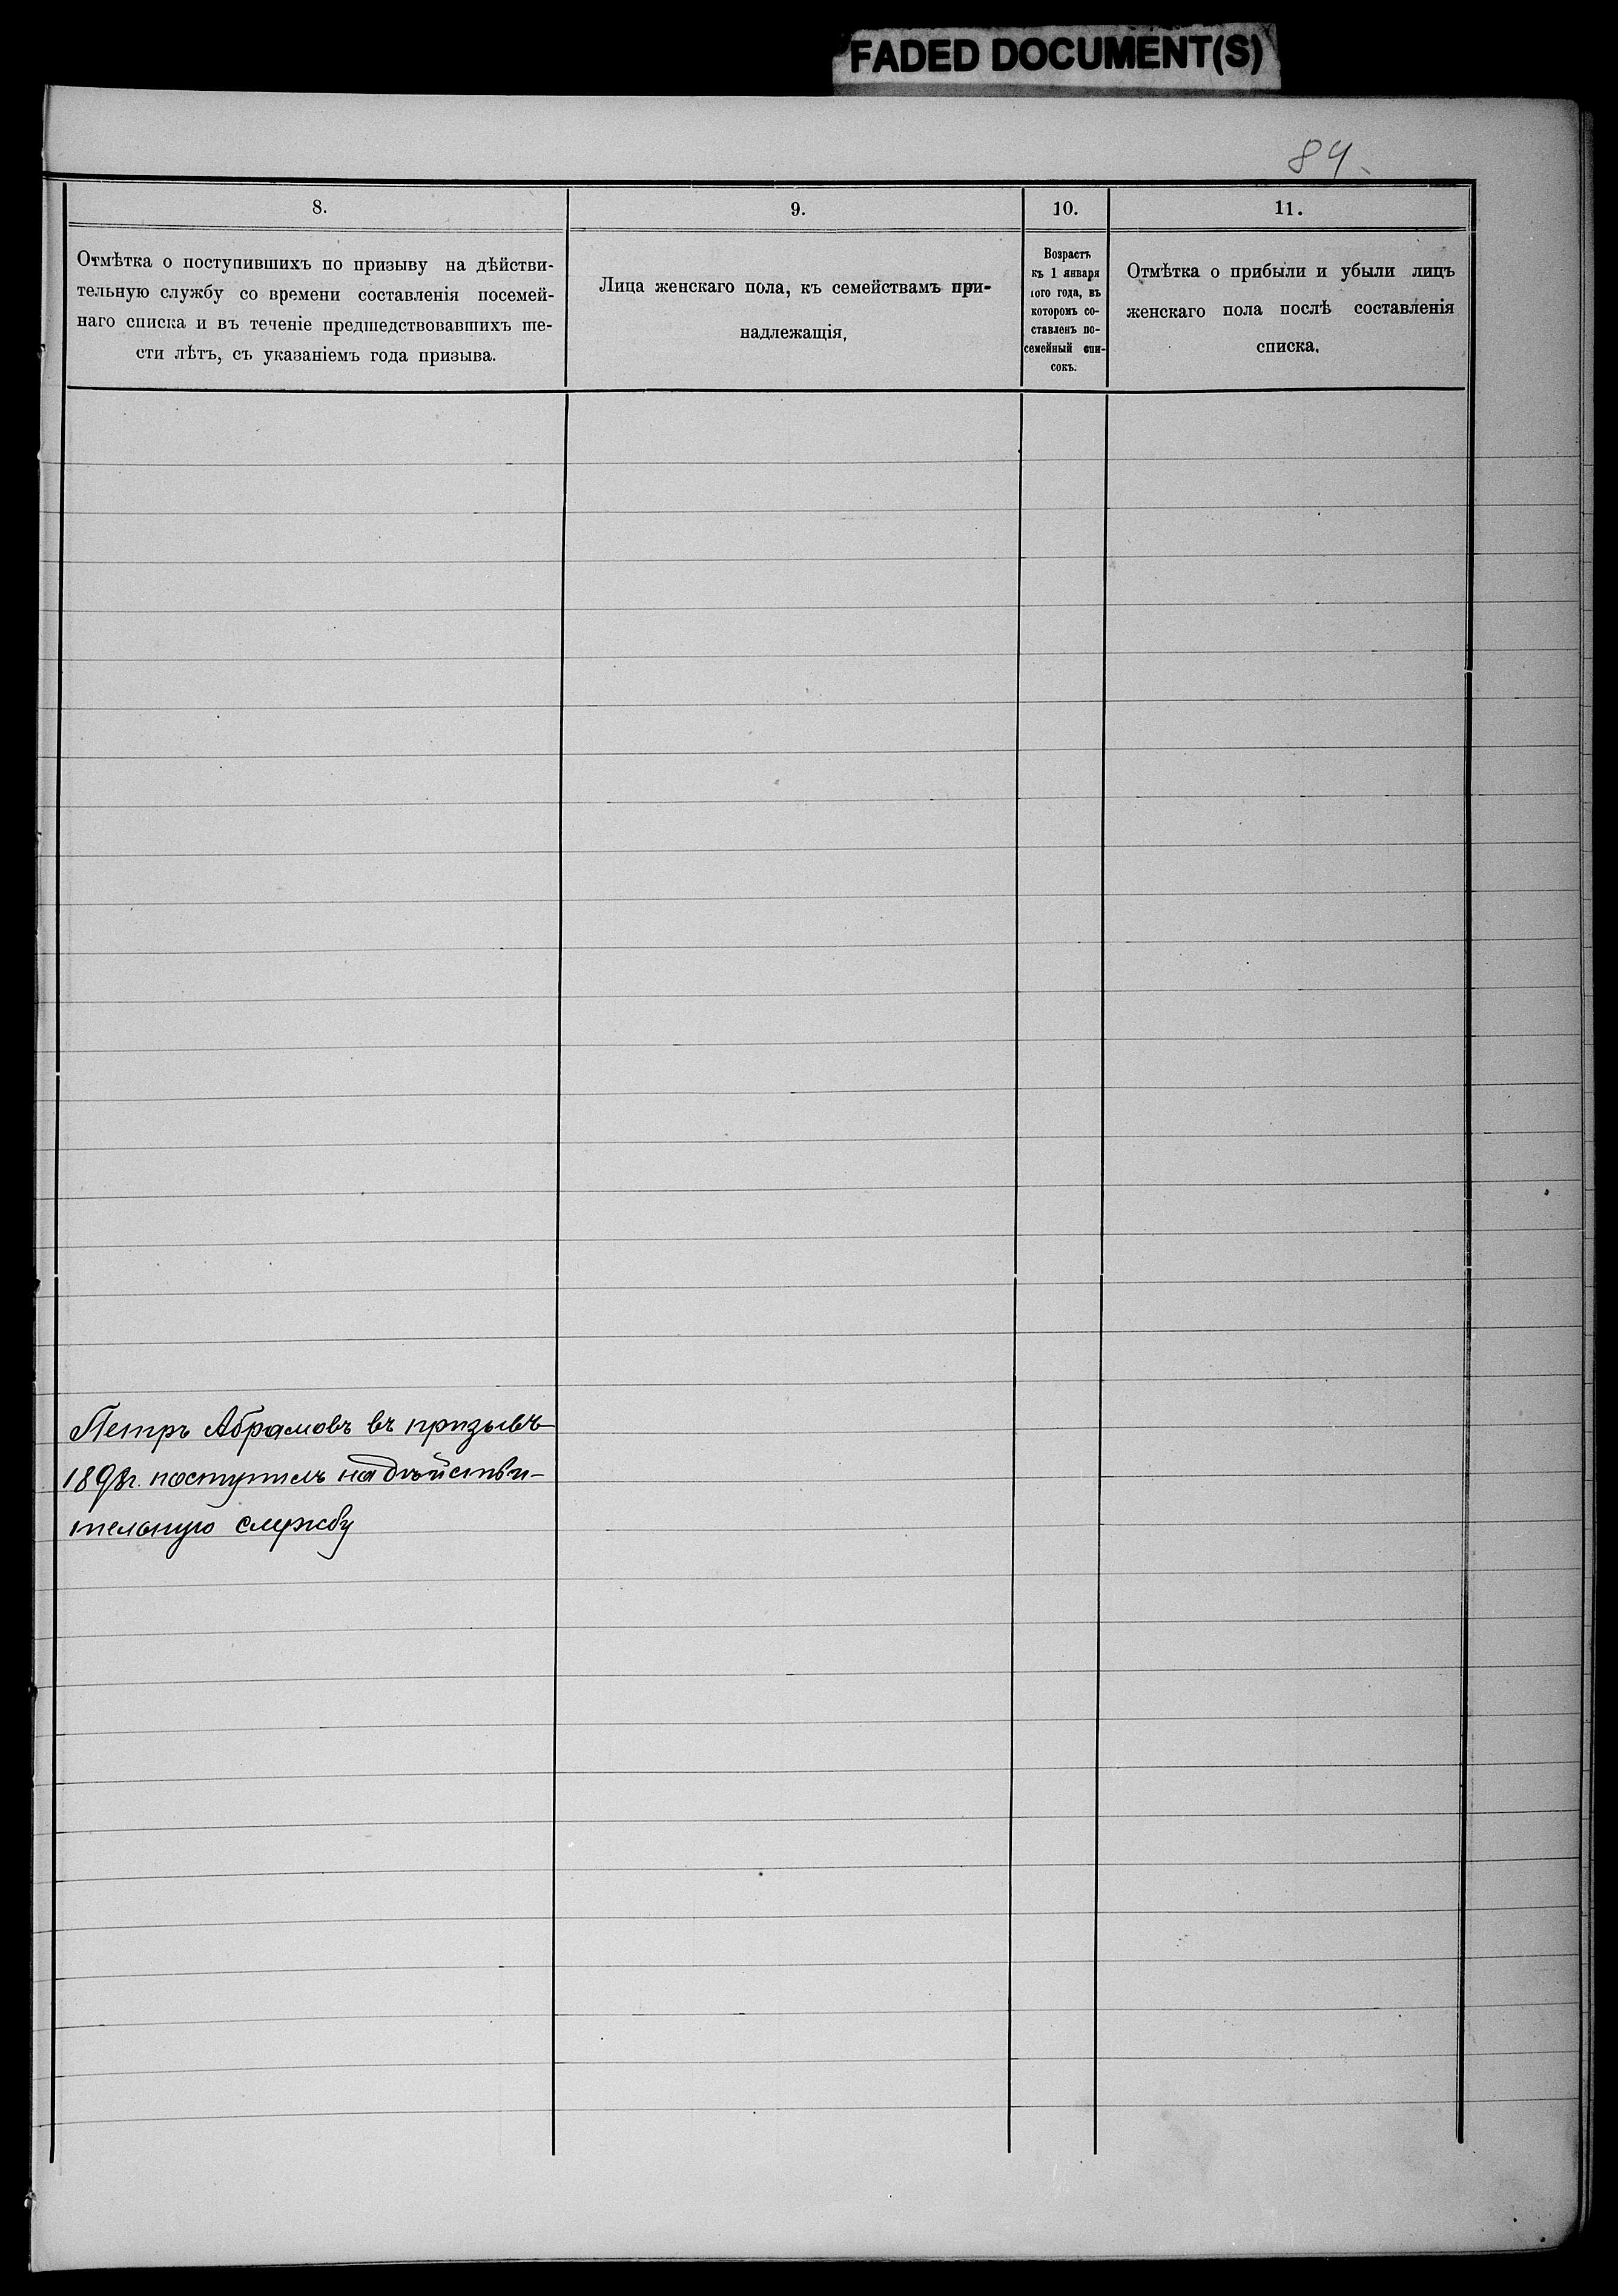 FADED DOCUMENT(S)
84
8.
9.
10.
11.
Отмѣтка о поступившихъ по призыву на дѣйстви-
тельную службу со времени составленія посемей-
наго списка и въ теченіе предшедствовавшихъ ше-
сти лѣтъ, съ указаніемъ года призыва.
Лица женскаго пола, къ семействамъ при-
надлежащія.
Возрастъ
къ 1 января
того года, въ
которомъ со-
ставленъ по-
семейный спи-
сокъ.
Отмѣтка о прибыли и убыли лицъ
женскаго пола послѣ составленія
списка.
Петръ Абрамовъ въ призывъ
поступилъ на дѣйстви-
тельную службу